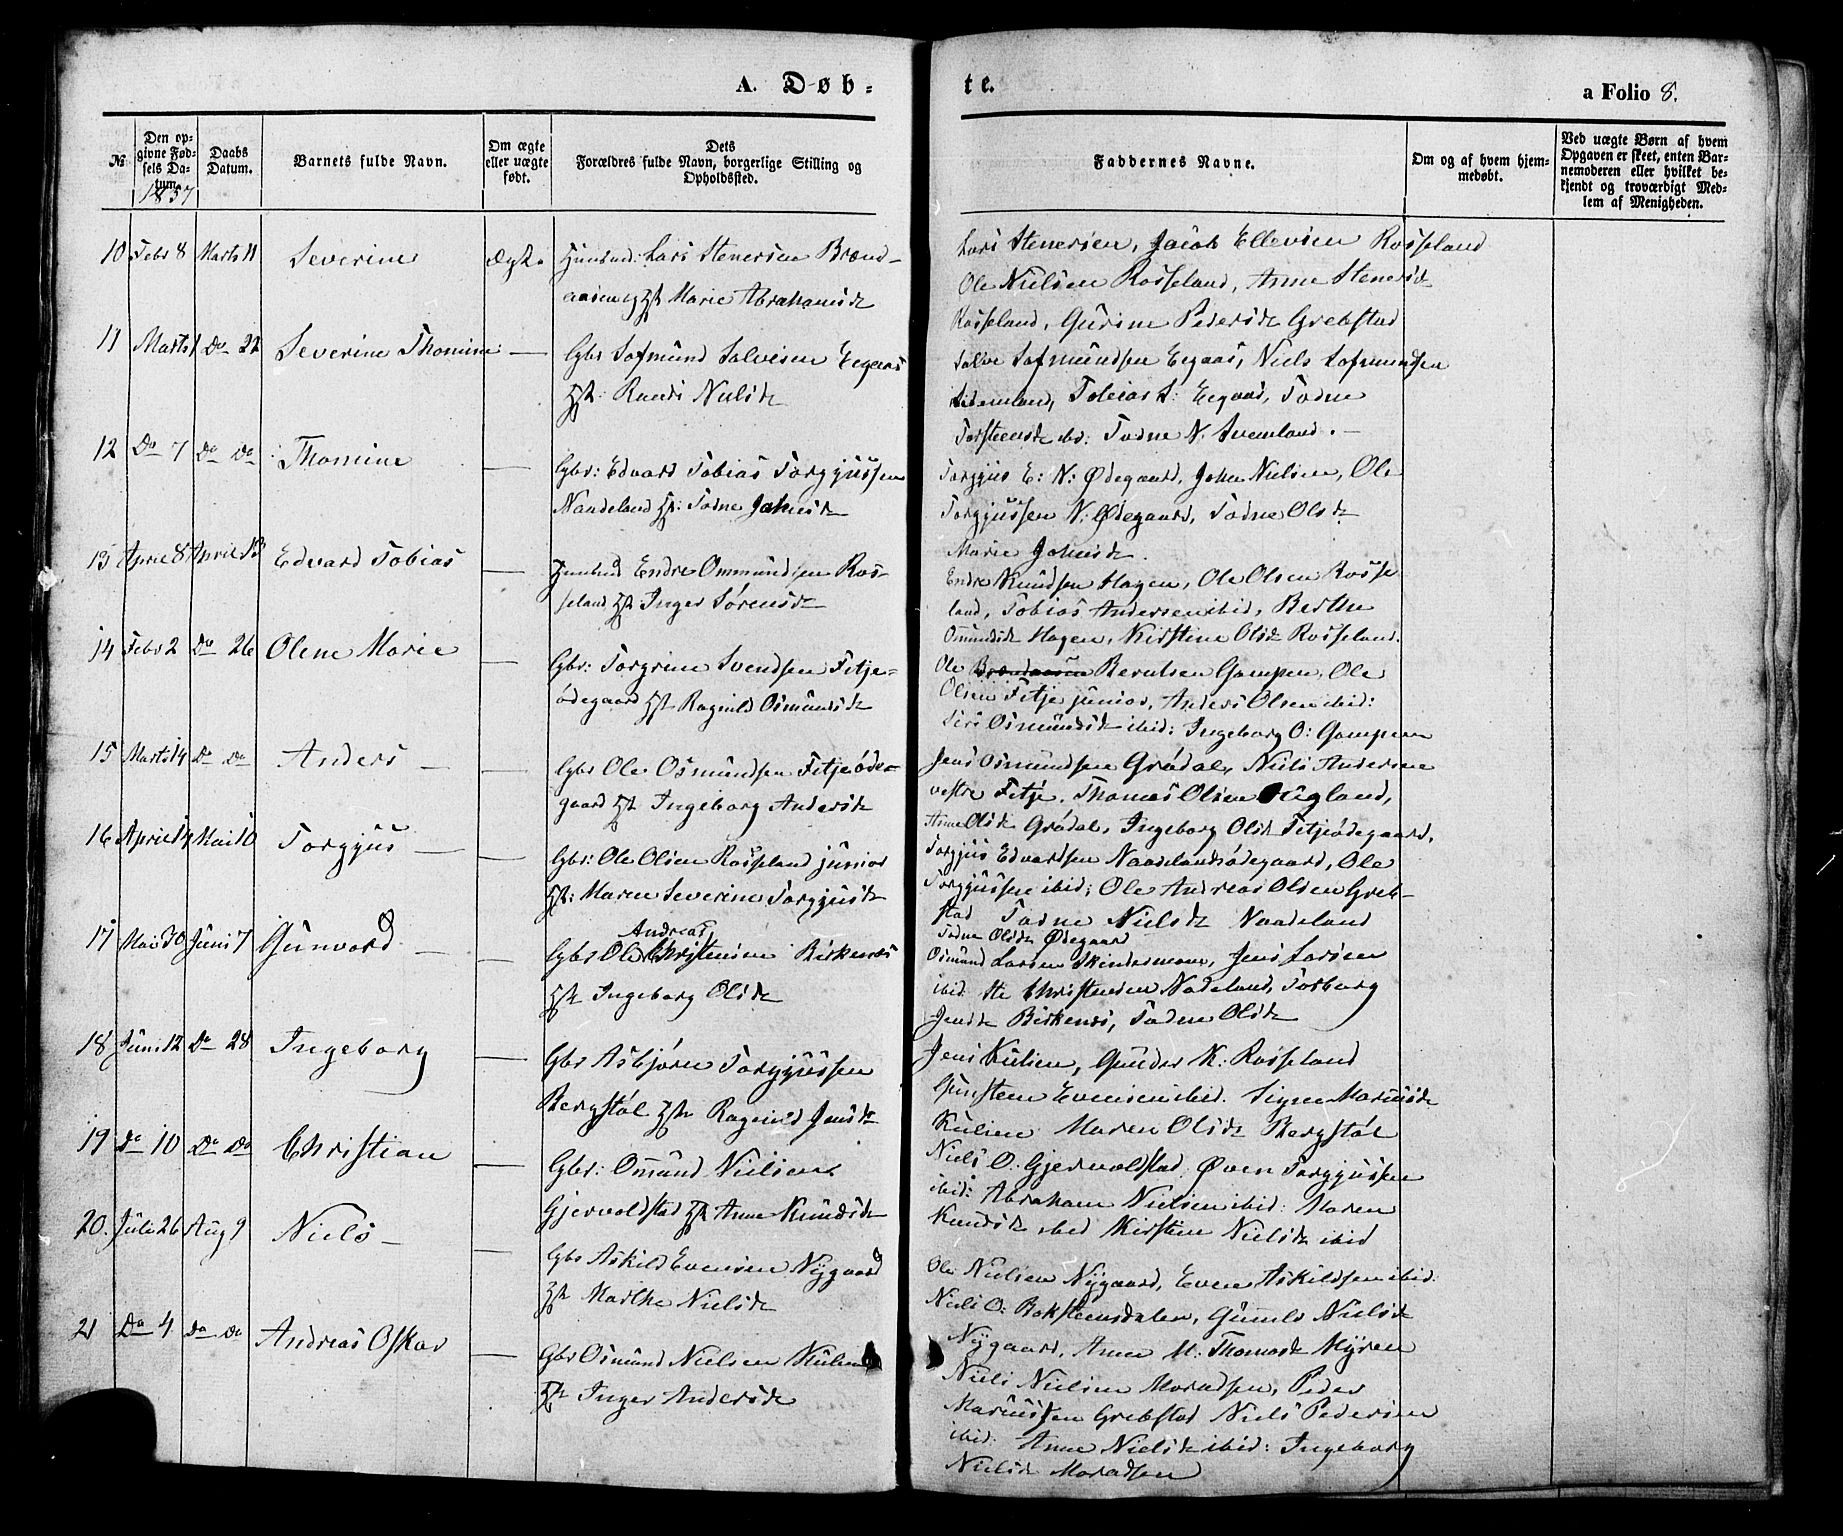 A. Døb-
te.
a Folio 8.
№
Den opgivne Fødsels Datum.
1857
Daabs Datum.
Barnets fulde Navn.
Om ægte eller uægte født.
Dets Forældres fulde Navn, borgerlige Stilling og Opholdssted.
Faddernes Navne.
Om og af hvem hjemmedøbt.
Ved uægte Børn af hvem Opgaven er skeet, enten Barnemoderen eller hvilket bekjendt og troværdigt Medlem af Menigheden.
10 Febr 8 Marts 11 Severine Ægte Huusmd: Lars Stenersen Brænd-
aasen og Hst Marie Abrahamsdt
Lars Stenersen, Jacob Ellevsen Rosseland
Ole Nielsen Rosseland, Anne Stenersdt
Rosseland, Gurine Pedersdt Grebstad
11 Marts 1 Do 22 Severine Thomine — Gbr Sosmund Salvesen Eegaas
Hst: Randi Nielsdt
Salve Sosmundsen Eegaas, Niels Sosmundsen
Tobias S: Eegaas, Todne
Torsteensdt ibd: Todne N. Svemland. —
12 Do 7 Do Do Thomine — Gbr: Edvard Tobias Torgjussen
Naadeland Hst: Todne Johnsdt
Torgjus E: N: Ødegaard, John Nielsen, Ole
Torgjussen N: Ødegaard, Todne Olsdt
Marie Johnsdt.
13 April 8 April 13 Edvard Tobias — Huusmd Endre Ommundsen Ros-
seland Hst Inger Sørensdt
Endre Knudsen Hagen, Ole Olsen Rosse
land, Tobias Andersen ibid, Berthe
Osmundsdt Hagen, Kirstine Olsdt Rosseland.
14 Febr 2 Do 26 Olene Marie — Gbr: Torgrim Svendsen Fitje-
ødegaard Hst Ragnild Osmundsdt
Ole Brændaasen Berntsen Gampen, Ole
Olsen Fitje junior, Anders Olsen ibid:
Siri Osmundsdt ibid: Ingeborg O: Gampen
15 Marts 14 Do Do Anders — — Gbr Ole Osmundsen Fitjeøde-
gaard Hst Ingeborg Andersdt
Jens Osmundsen Grødal, Niels Andersen
vestre Fitje. Thomas Olsen Ugland,
Anne Olsdt Grødal, Ingeborg Olsdt Fitjeødegaard.
16 April 14 Mai 10 Torgjus — — Gbr: Ole Olsen Rosseland junior
Hst: Maren Severine Torgjusdt
Torgjus Edvardsen Naadelandsødegaard, Ole
Torgjussen ibid; Ole Andreas Olsen Greb-
stad Todne Nielsdt Naadeland
Todne Olsdt Ødegaard
17 Mai 30 Juni 7 Gunvord — Andreas
Gbr Ole Christensen Birkenes
Hst Ingeborg Olsdt
Osmund Larsen Skindermoen, Jens Larsen
ibid. Christensen Nadeland, Torborg
Jensdt Birkenes, Todne Olsdt
18 Juni 12 Do 28 Ingeborg — Gbr Asbjørn Torgjussen
Bergstøl Hst Ragnild Jensdt
Jens Kulien, Gunder K: Rosseland
Gunsteen Evensen ibid. Signe Mariusdt
Kulien Maren Olsdt Bergstøl
19 Do 10 Do Do Christian — Gbr: Osmund Nielsen
Gjervoldstad Hst Anne Knudsdt
Niels O. Gjervoldstad. Øven Torgjussen
ibid: Abraham Nielsen ibid: Maren
Knudsdt ibid Kirstine Nielsdt ibid
20. Juli 26 Aug 9 Niels — — Gbr Askild Evensen Nygaard
Hst Marthe Nielsdt
Ole Nielsen Nygaard, Even Askildsen ibid:
Niels O: Boksteensdalen, Gunnild Nielsdt
Nygaard, Anne M: Thomasdt Myren
21 Do 4 Do Do Andreas Oskar — Gbr Osmund Nielsen Kulien
Hst Inger Andersdt
Niels Nielsen Moradsen, Peder
Mariussen Grebstad Niels Pedersen
ibid: Anne Nielsdt ibid: Ingeborg
Nielsdt Moradsen